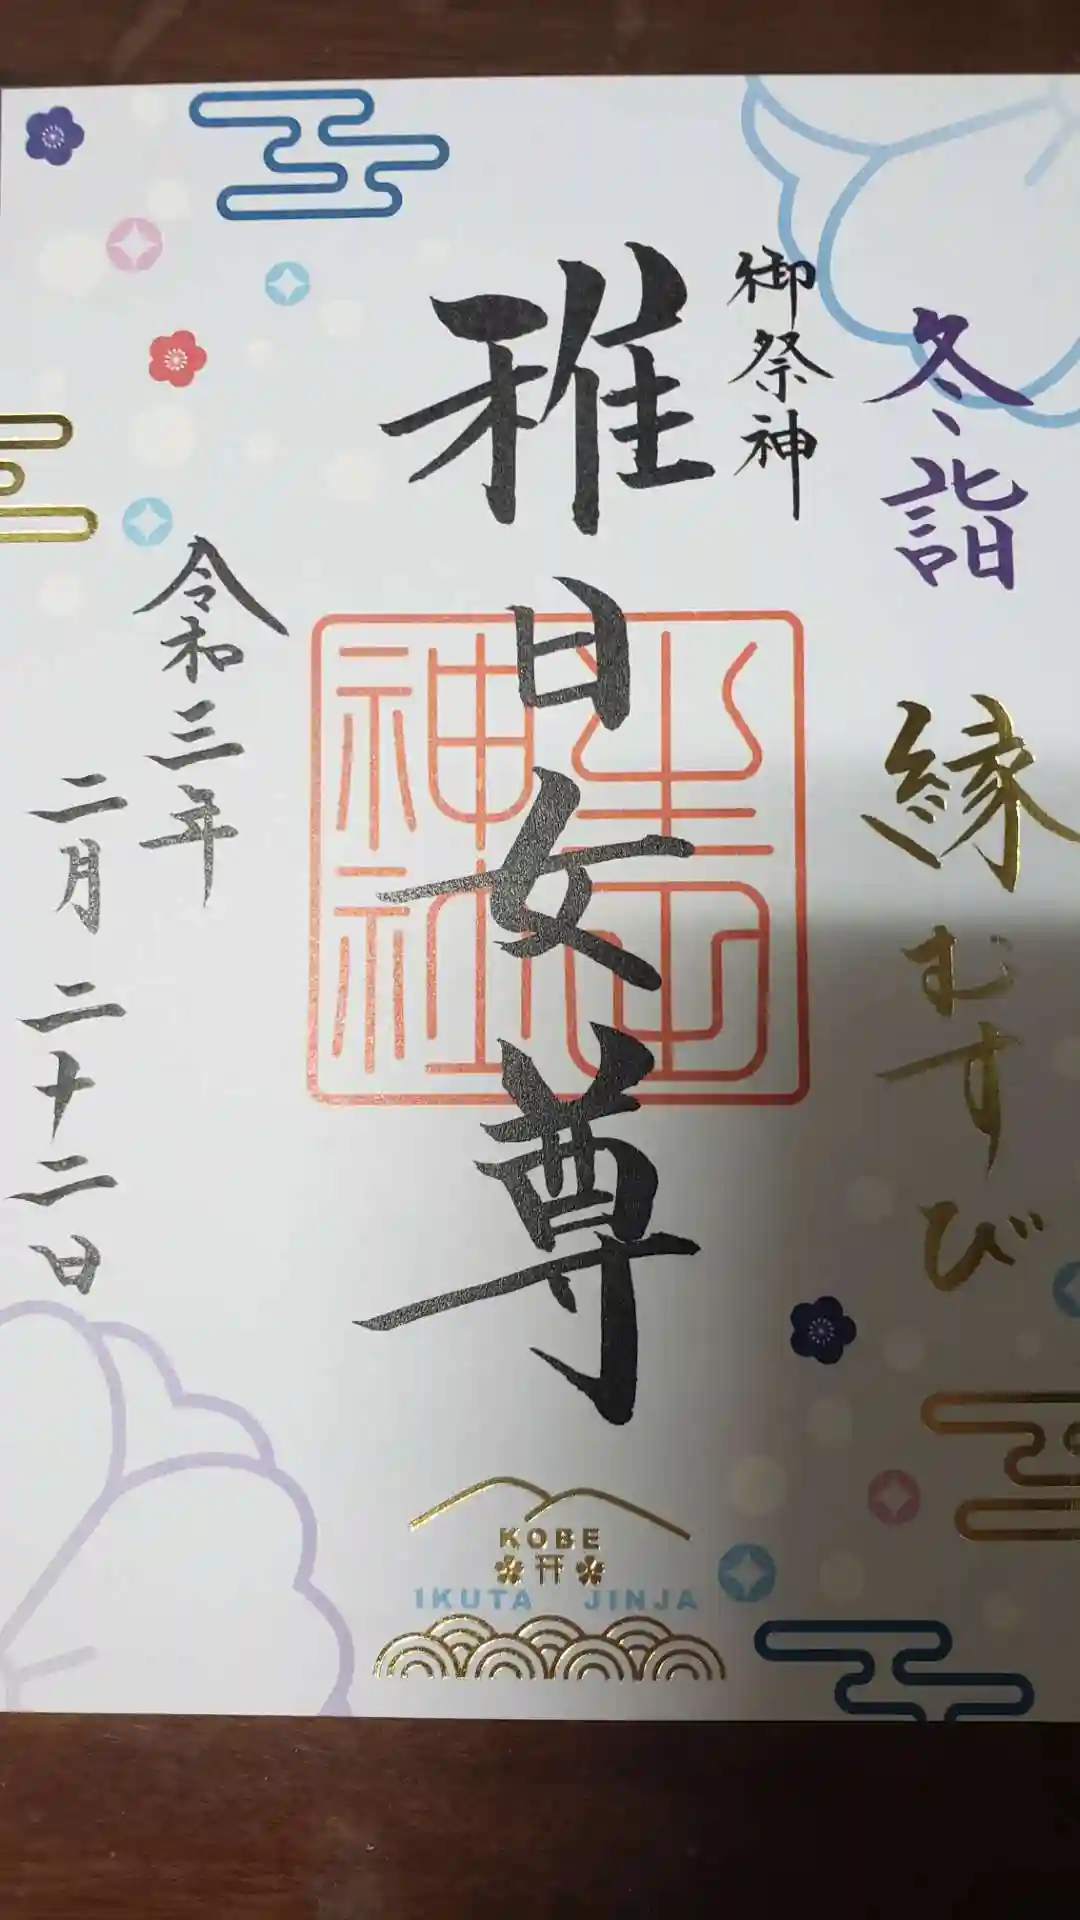 冬詣 縁むすび
御祭神
稚日女尊
生田神社
令和三年
二月二十二日
KOBE
IKUTA JINJA